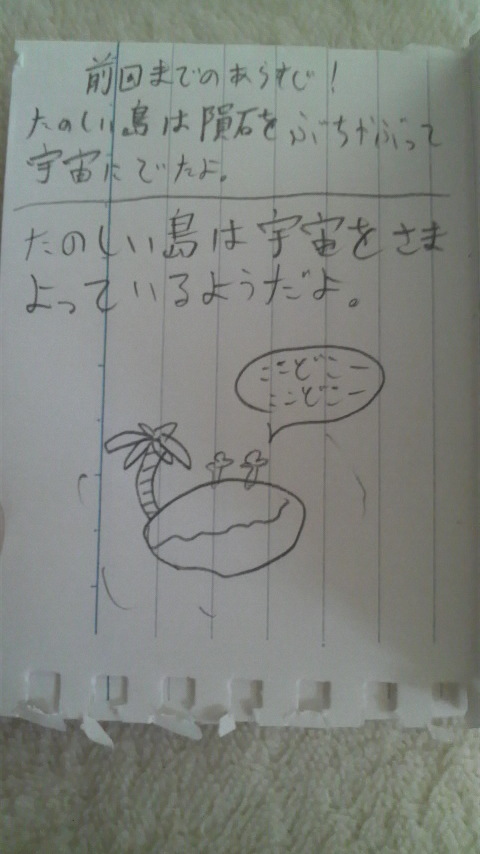 前回までのあらすじ!
たのしい島は隕石をぶちやぶって
宇宙にでたよ。
たのしい島は宇宙をさま
よっているようだよ。
ここどこー
ここどこー